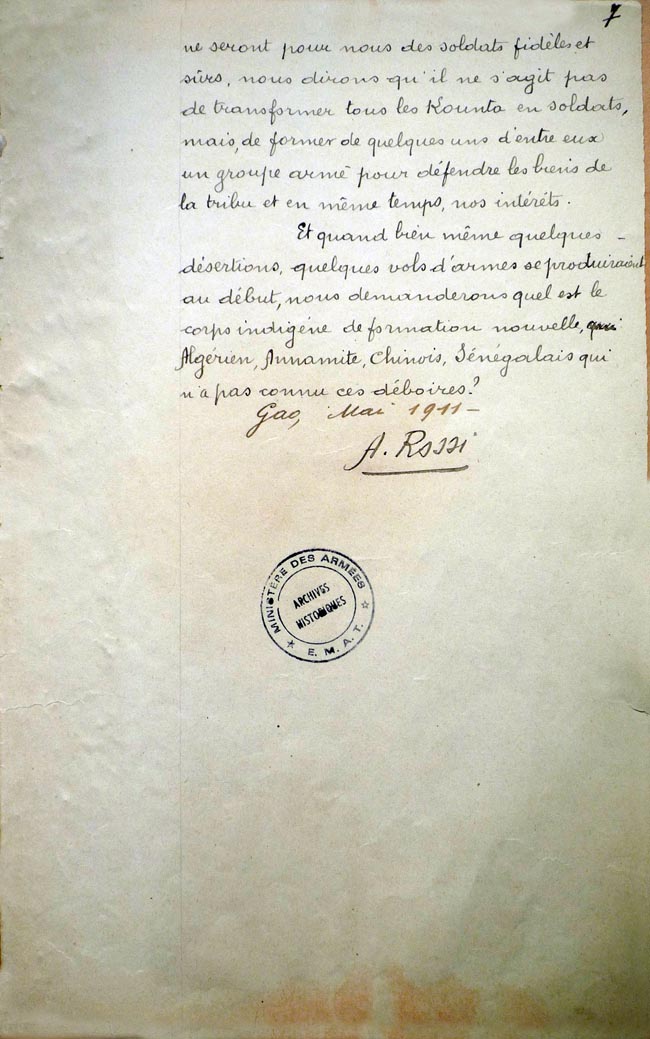 7
ne seront pour nous des soldats fidèles et
sûrs, nous dirons qu'il ne s'agit pas
de transformer tous les Kounta en soldats,
mais, de former de quelques uns d'entre eux
un groupe armé pour défendre les biens de
la tribu et en même temps, nos intérêts.
Et quand bien même quelques
désertions, quelques vols d'armes se produiraient
au début, nous demanderons quel est le
corps indigène de formation nouvelle,
Algérien, Annamite, Chinois, Sénégalais qui
n'a pas connu ces déboires?
Gao, Mai 1911-
A. Rossi
MINISTÈRE DES ARMÉES
ARCHIVES
HISTORIQUES
★ E. M. A. T. ☆